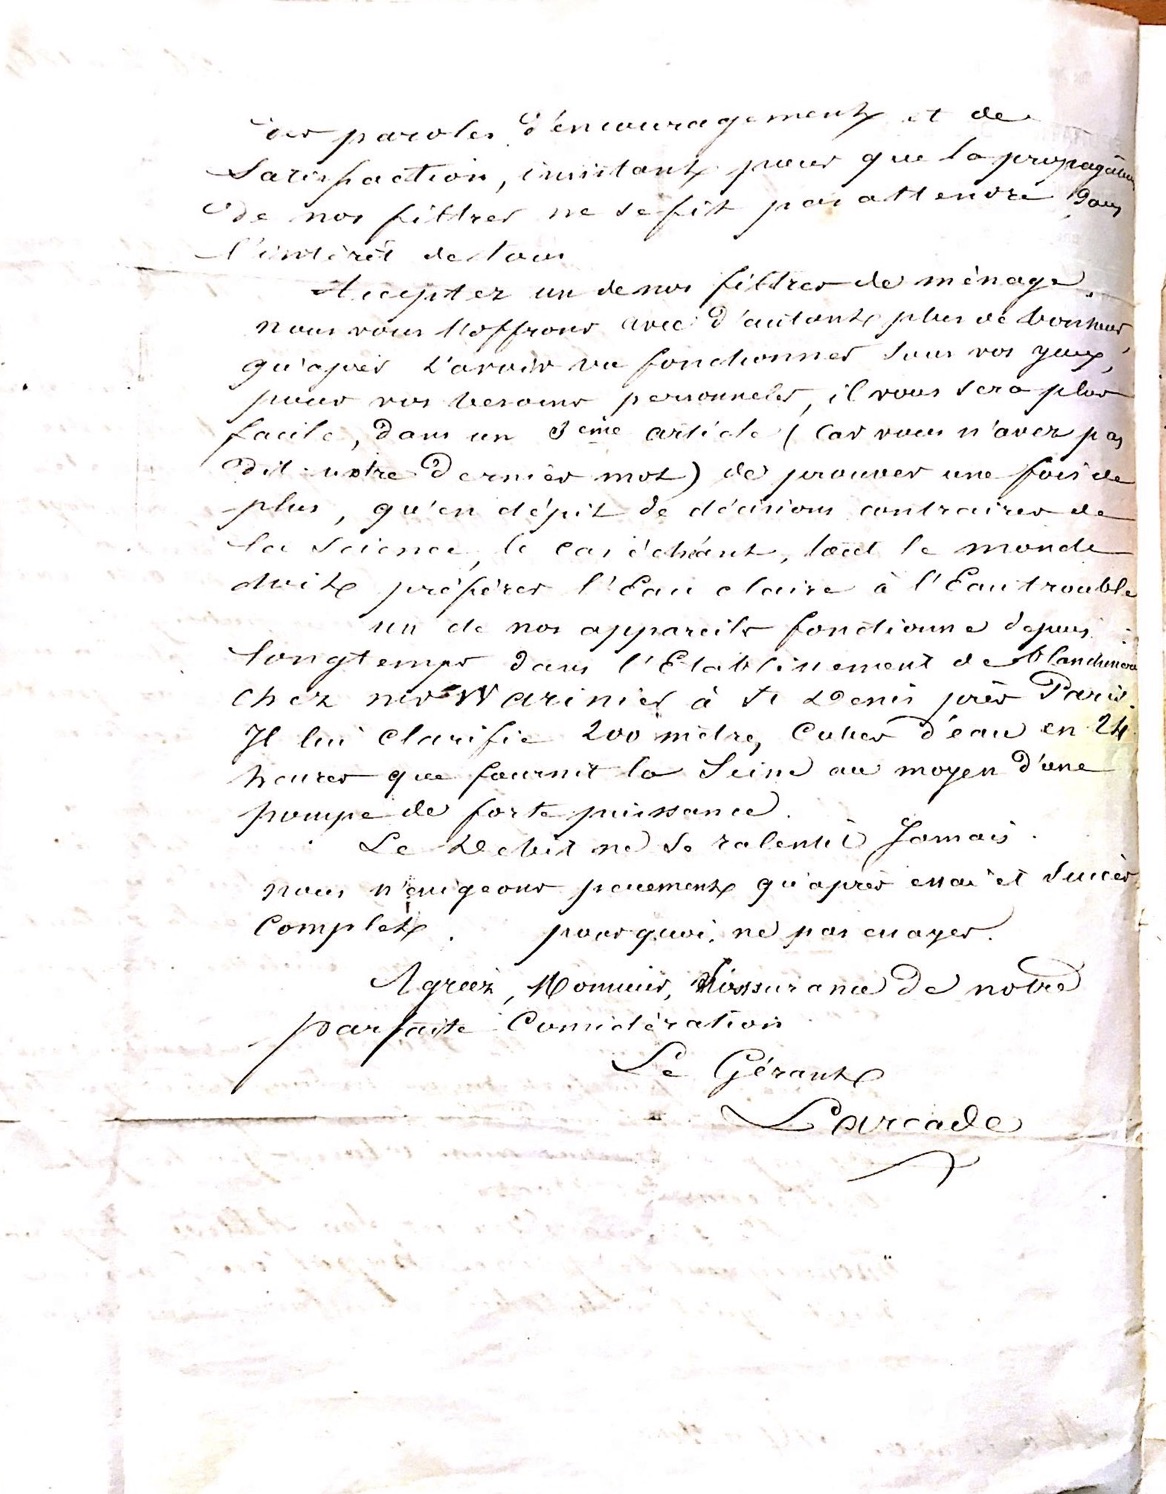 des paroles d'encouragement et de
Satisfaction, insistant pour que la propagation
de nos filtres ne se fit pas attendre dans
l'intérêt de tous
Acceptez un de nos filtres de ménage.
nous vous l'offrons avec d'autant plus de bonheur,
qu'après l'avoir vu fonctionner sous vos yeux,
pour vos besoins personnels, il vous sera plus
facile, dans un 3eme article (car vous n'avez pas
dit votre dernier mot) de prouver une fois de
plus, qu'en dépit de décisions contraires de
la science, le cas échéant, tout le monde
doit préférer l'Eau claire à l'Eau trouble
un de nos appareils fonctionne depuis
longtemps dans l'Etablissement de Blanchisserie
chez mr Warinier à St Denis près Paris.
Il lui clarifie 200 mètres Cubes d'eau en 24
heures que fournit la Seine au moyen d'une
pompe de forte puissance.
Le Debit ne se ralentit Jamais.
nous n'exigeons payement qu'après essai et Succès
Complet. pourquoi, ne pas essayer.
Agréez, Monsieur, l'assurance de notre
parfaite Considération
Le Gérant
Larcade